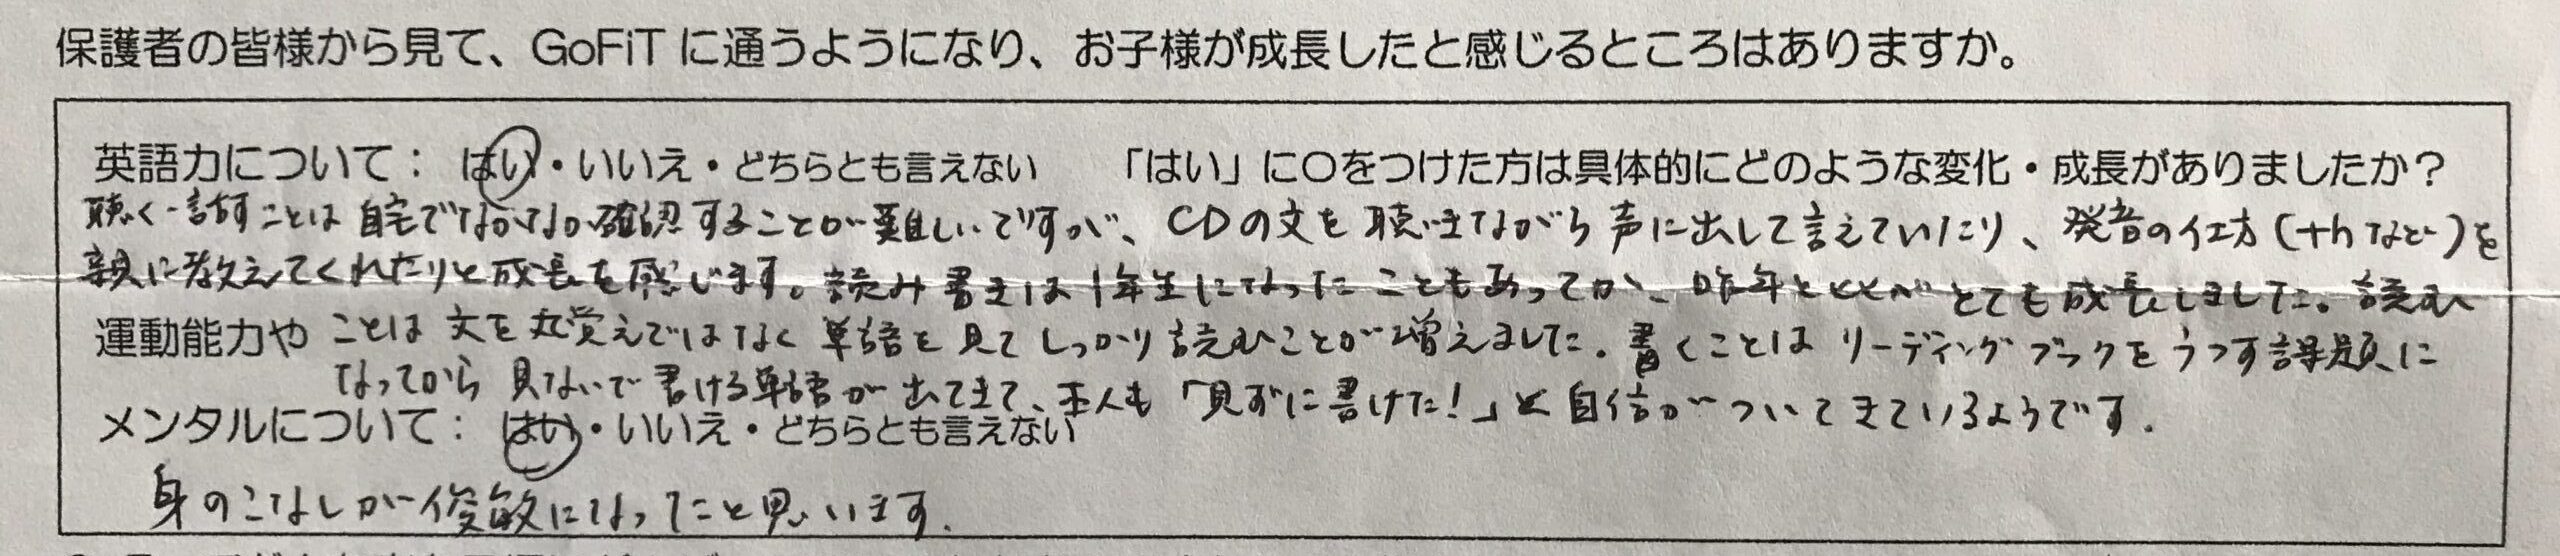 保護者の皆様から見て、GoFiTに通うようになり、お子様が成長したと感じるところはありますか。
英語力について： はい・いいえ・どちらとも言えない 「はい」に〇をつけた方は具体的にどのような変化・成長がありましたか？
聴く・話すことは自宅でなかなか確認することが難しいですが、CDの文を聴きながら声に出して言えていたり、発音の仕方(thなど)を
親に教えてくれたりと成長を感じます。読み書きは1年生になったこともあってか、昨年とくらべとても成長しました。読む
運動能力や ことは文を丸覚えではなく単語を見てしっかり読むことが増えました。書くことはリーディングブックをうつす課題に
なってから見ないで書ける単語が出てきて、本人も「見ずに書けた！」と自信がついてきているようです。
メンタルについて： はい・いいえ・どちらとも言えない
身のこなしが俊敏になったと思います。